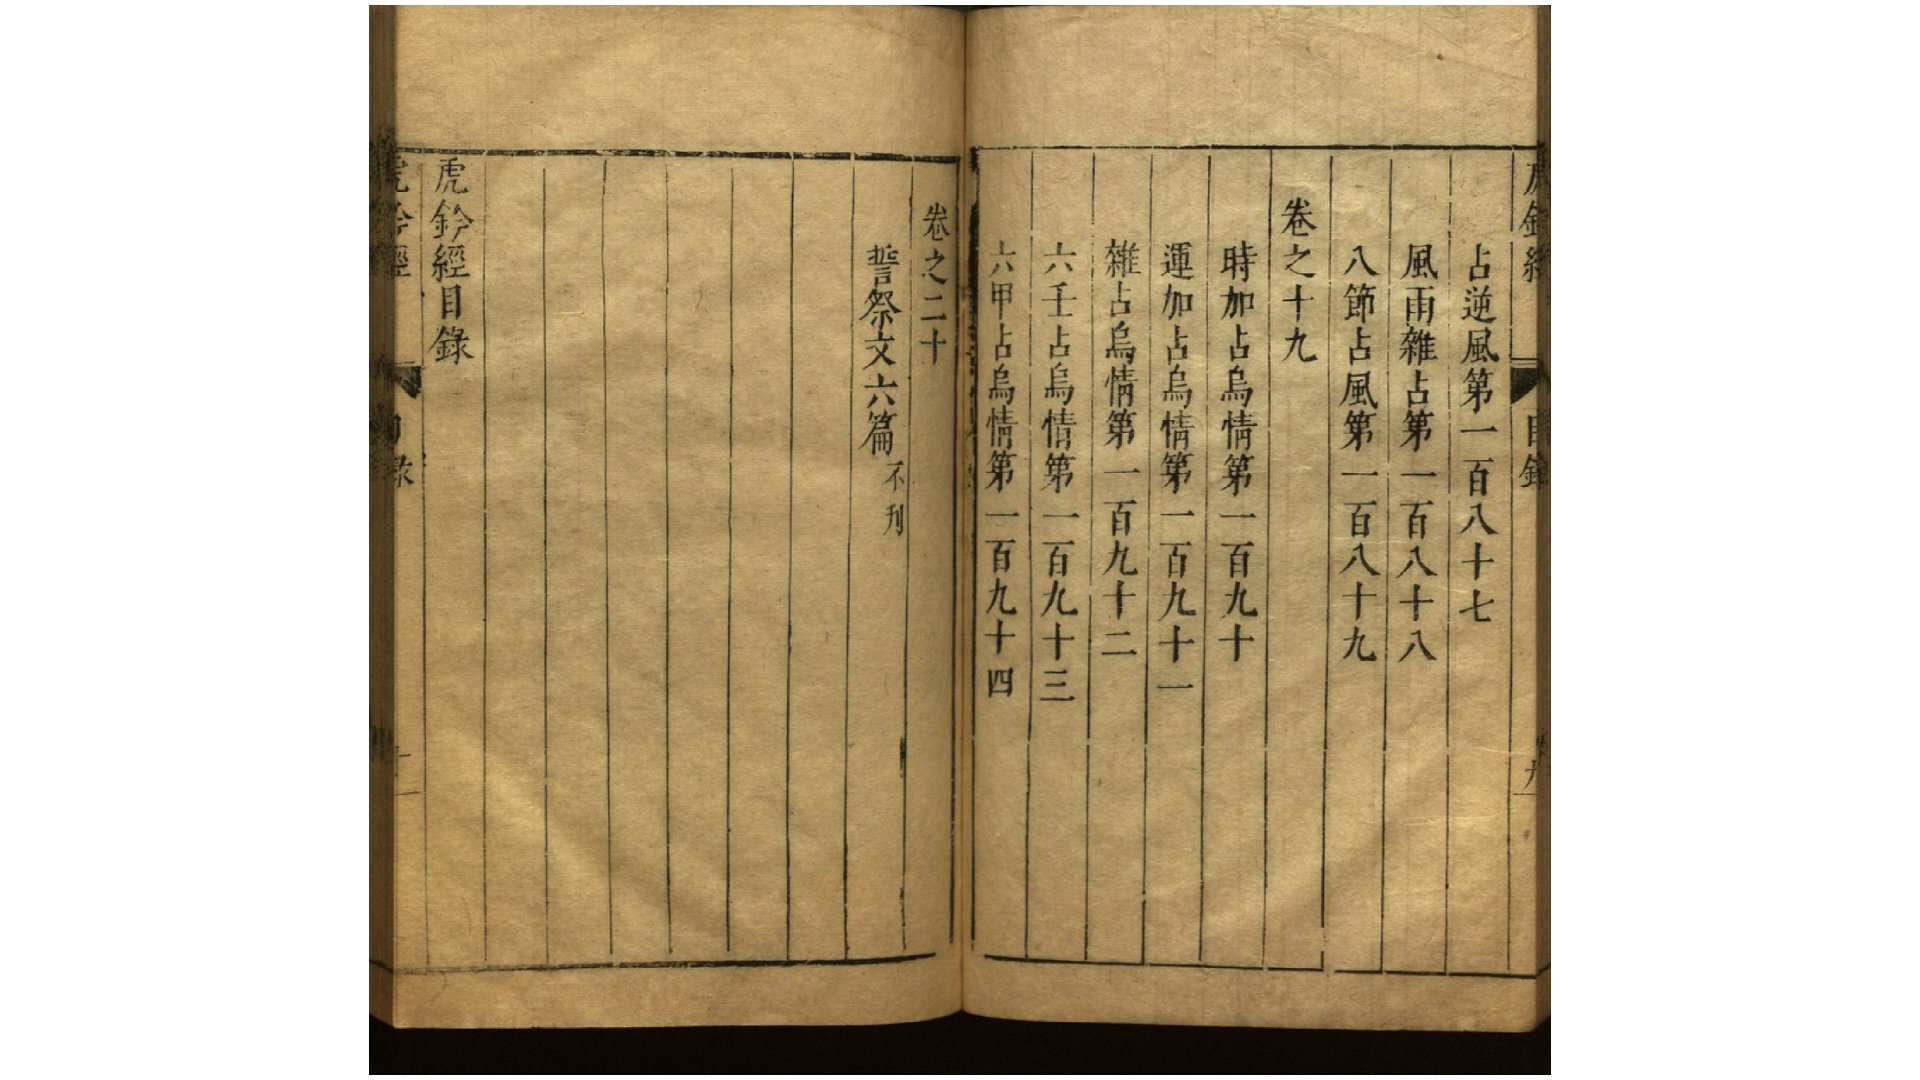 占逆風第一百八十七
風雨雜占第一百八十八
八節占風第一百八十九
卷之十九
時加占烏情第一百九十
運加占烏情第一百九十一
雜占烏情第一百九十二
六壬占烏情第一百九十三
六甲占烏情第一百九十四
卷之二十
誓祭文六篇 不刋
虎鈐經目錄
虎鈐經 目錄